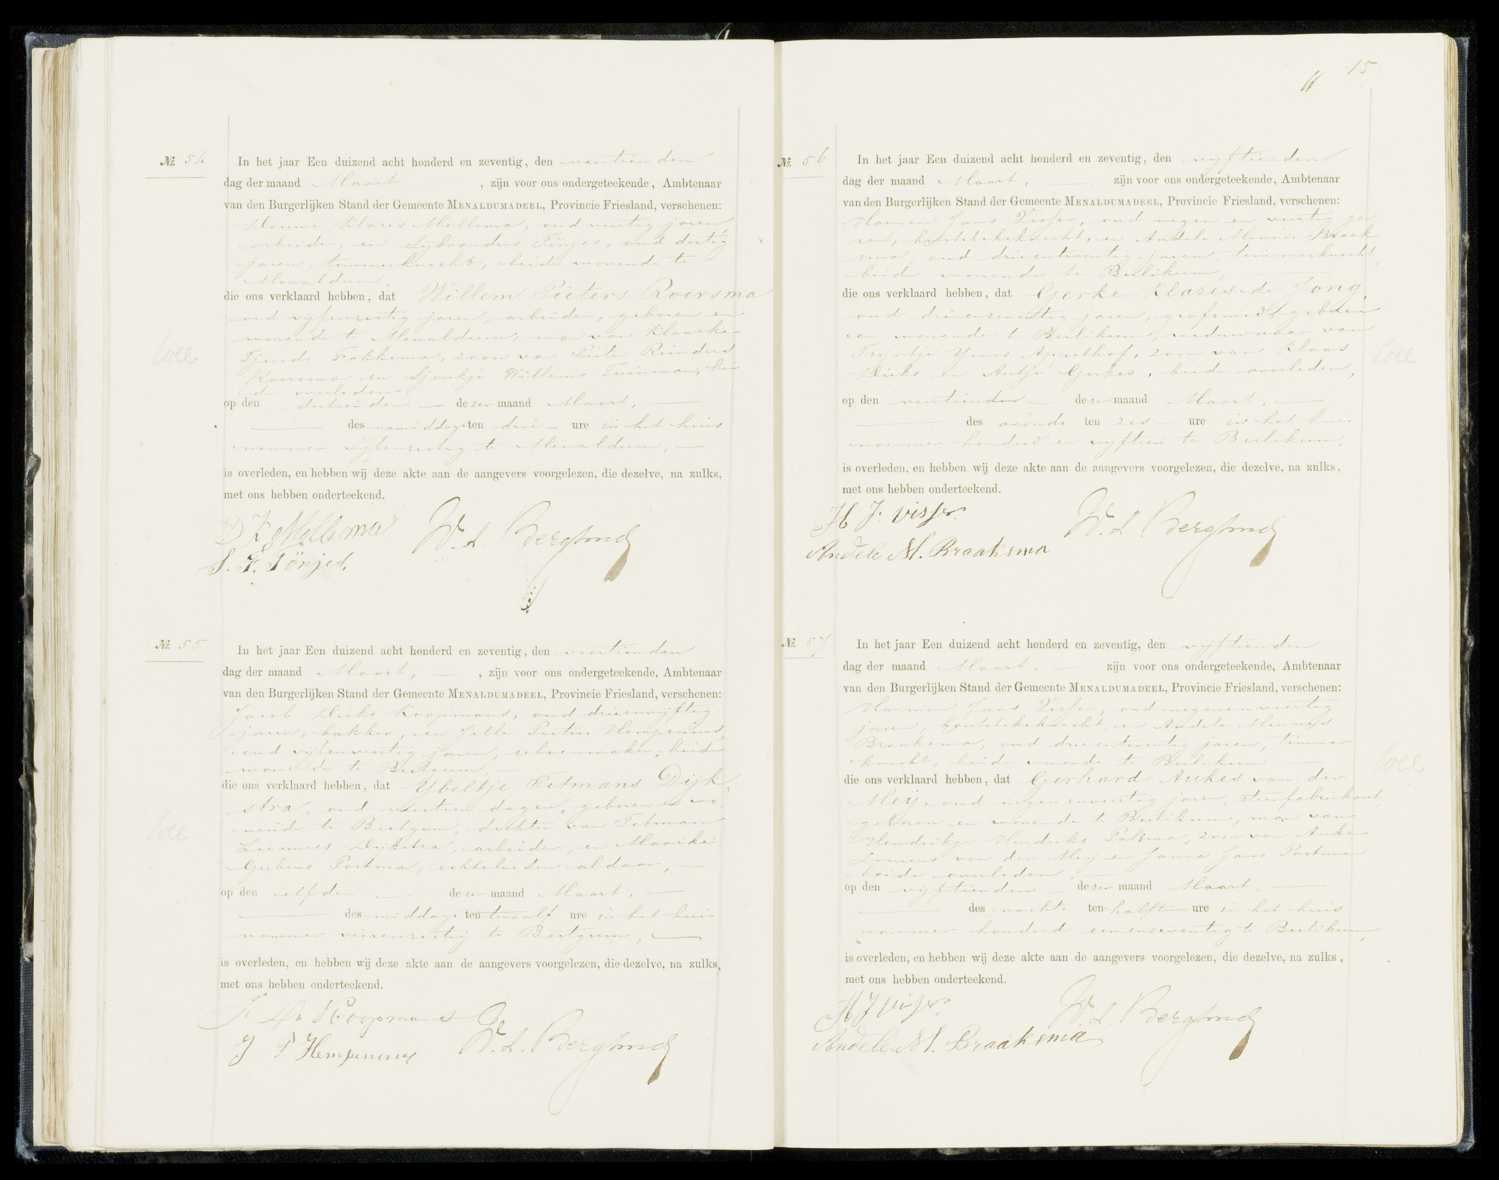 No 54
In het jaar Een duizend acht honderd en zeventig, den veertienden
dag der maand Maart, zijn voor ons ondergeteekende, Ambtenaar
van den Burgerlijken Stand der Gemeente MENALDUMADEEL, Provincie Friesland, verschenen:
Klazes Mollema, oud veertig jaren,
arbeider, en Sijbrandus Tönjes, oud dertig
jaren, timmerknecht, beide wonende te
Menaldum,
die ons verklaard hebben, dat Willem Pieters Roorsma
oud vijfenveertig jaren, arbeider, geboren en
wonende te Menaldum, man van Klaaske
Tjeerds Fokkema, zoon van Pieter Reinders
en Sjoukje Willems Tuinman, bei
de overleden,
op den dertienden dezer maand Maart,
des namiddags ten drie ure in het huis
nommer te Menaldum,
is overleden, en hebben wij deze akte aan de aangevers voorgelezen, die dezelve, na zulks,
met ons hebben onderteekend.
D K Mollema W. L. Bergsma
S. F. Tönjes.
No 55
In het jaar Een duizend acht honderd en zeventig, den veertienden
dag der maand Maart, zijn voor ons ondergeteekende, Ambtenaar
van den Burgerlijken Stand der Gemeente MENALDUMADEEL, Provincie Friesland, verschenen:
Jacob Koopmans, oud drieenvijftig
jaren, bakker, en Jelle Pieters Hempenius,
oud vijfenveertig jaren, schoenmaker, beide
wonende te Beetgum,
die ons verklaard hebben, dat Ybeltje Tetmans Dijk
stra, oud veertien dagen, geboren en wo
nende te Beetgum, dochter van Tetman
Dijkstra, arbeider, en Maaike
Postma, echtelieden aldaar,
op den elfden dezer maand Maart,
des middags ten twaalf ure in het huis
nommer te Beetgum,
is overleden, en hebben wij deze akte aan de aangevers voorgelezen, die dezelve, na zulks,
met ons hebben onderteekend.
Koopmans
J P Hempenius W. L. Bergsma
15
No 56
In het jaar Een duizend acht honderd en zeventig, den vijftienden
dag der maand Maart, zijn voor ons ondergeteekende, Ambtenaar
van den Burgerlijken Stand der Gemeente MENALDUMADEEL, Provincie Friesland, verschenen:
Harmen Jans Visser, oud negen en veertig ja
ren, en Andele Meinerts Braak
sma, oud drieentwintig jaren, timmerknecht,
beide wonende te Berlikum,
die ons verklaard hebben, dat Gerke Klazes de Jong,
oud jaren, geboren
en wonende te Berlikum, weduwnaar van
Trijntje Apselhof, zoon van Klaas
en Antje Gerkes, beide overleden,
op den veertienden dezer maand Maart,
des avonds ten zes ure in het huis
nommer honderd en vijftien te Berlikum,
is overleden, en hebben wij deze akte aan de aangevers voorgelezen, die dezelve, na zulks,
met ons hebben onderteekend.
H J. Visser W. L. Bergsma
Andele M. Braaksma
No 57
In het jaar Een duizend acht honderd en zeventig, den vijftienden
dag der maand Maart, zijn voor ons ondergeteekende, Ambtenaar
van den Burgerlijken Stand der Gemeente MENALDUMADEEL, Provincie Friesland, verschenen:
Harmen Jans Visser, oud negenenveertig
jaren, en Andele Meinerts
Braaksma, oud drieentwintig jaren, timmer
knecht, beide wonende te Berlikum
die ons verklaard hebben, dat Gerhard Aukes van der
Meij, oud jaren,
geboren en wonende te Berlikum, man van
Hendrikje Hendriks zoon van Auke
van der Meij en Janna Jans Postma
beide overleden,
op den vijftienden dezer maand Maart,
des nachts ten half een ure in het huis
nommer honderd eenenzeventig te Berlikum,
is overleden, en hebben wij deze akte aan de aangevers voorgelezen, die dezelve, na zulks,
met ons hebben onderteekend.
H J Visser W. L. Bergsma
Andele M. Braaksma